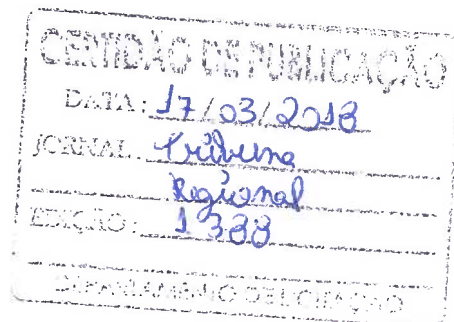 CERTIDÃO DE PUBLICAÇÃO
DATA: 17/03/2018
JORNAL: Tribuna
Regional
EDIÇÃO: 1388
DEPARTAMENTO DE LICITAÇÃO